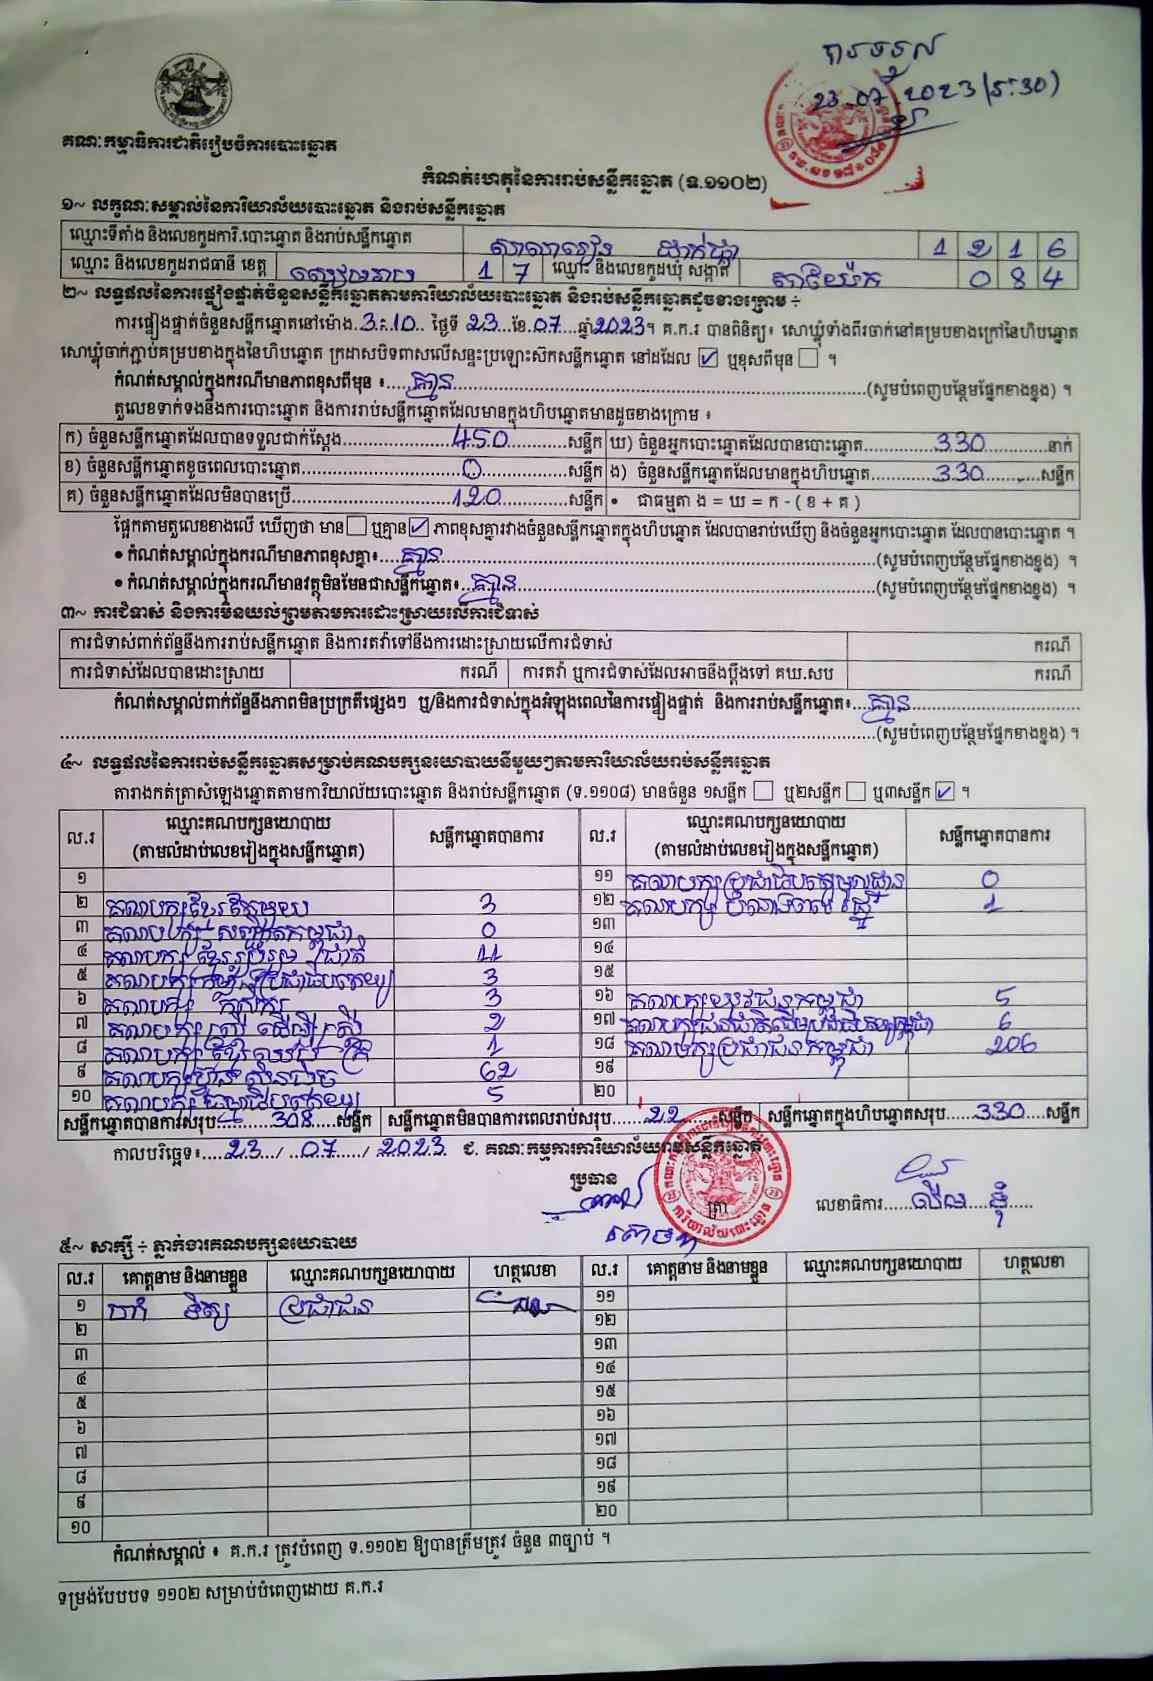 បានទទួល
23.07.2023 (5:30)
គណៈកម្មាធិការជាតិរៀបចំការបោះឆ្នោត
កំណត់ហេតុនៃការរាប់សន្លឹកឆ្នោត (ទ.១១០២)
១~ លក្ខណៈសម្គាល់នៃការិយាល័យបោះឆ្នោត និងរាប់សន្លឹកឆ្នោត
ឈ្មោះទីតាំង និងលេខកូដការិ.បោះឆ្នោត និងរាប់សន្លឹកឆ្នោត សាលារៀន 1 2 1 6
ឈ្មោះ និងលេខកូដរាជធានី ខេត្ត សៀមរាប 1 7 ឈ្មោះ និងលេខកូដឃុំ សង្កាត់ 0 8 4
២~ លទ្ធផលនៃការផ្ទៀងផ្ទាត់ចំនួនសន្លឹកឆ្នោតតាមការិយាល័យបោះឆ្នោត និងរាប់សន្លឹកឆ្នោតដូចខាងក្រោម ÷
ការផ្ទៀងផ្ទាត់ចំនួនសន្លឹកឆ្នោតនៅម៉ោង.3:10.. ថ្ងៃទី 23 .ខែ.07....ឆ្នាំ2023។ គ.ក.រ បានពិនិត្យ៖ សោឃ្លុំទាំងពីរចាក់នៅគម្របខាងក្រៅនៃហិបឆ្នោត
សោឃ្លុំចាក់ភ្ជាប់គម្របខាងក្នុងនៃហិបឆ្នោត ក្រដាសបិទពាសលើសន្ទះប្រឡោះស៊កសន្លឹកឆ្នោត នៅដដែល ☑ ឬខុសពីមុន ☐ ។
កំណត់សម្គាល់ក្នុងករណីមានភាពខុសពីមុន ៖....គ្មាន....(សូមបំពេញបន្ថែមផ្នែកខាងខ្នង) ។
តួលេខទាក់ទងនឹងការបោះឆ្នោត និងការរាប់សន្លឹកឆ្នោតដែលមានក្នុងហិបឆ្នោតមានដូចខាងក្រោម ៖
ក) ចំនួនសន្លឹកឆ្នោតដែលបានទទួលជាក់ស្តែង....450....សន្លឹក ឃ) ចំនួនអ្នកបោះឆ្នោតដែលបានបោះឆ្នោត....330....នាក់
ខ) ចំនួនសន្លឹកឆ្នោតខូចពេលបោះឆ្នោត....0....សន្លឹក ង) ចំនួនសន្លឹកឆ្នោតដែលមានក្នុងហិបឆ្នោត....330....សន្លឹក
គ) ចំនួនសន្លឹកឆ្នោតដែលមិនបានប្រើ....120....សន្លឹក • ជាធម្មតា ង = ឃ = ក - ( ខ + គ )
ផ្អែកតាមតួលេខខាងលើ ឃើញថា មាន ☐ ឬគ្មាន ☑ ភាពខុសគ្នារវាងចំនួនសន្លឹកឆ្នោតក្នុងហិបឆ្នោត ដែលបានរាប់ឃើញ និងចំនួនអ្នកបោះឆ្នោត ដែលបានបោះឆ្នោត ។
• កំណត់សម្គាល់ក្នុងករណីមានភាពខុសគ្នា៖....គ្មាន....(សូមបំពេញបន្ថែមផ្នែកខាងខ្នង) ។
• កំណត់សម្គាល់ក្នុងករណីមានវត្ថុមិនមែនជាសន្លឹកឆ្នោត៖....គ្មាន....(សូមបំពេញបន្ថែមផ្នែកខាងខ្នង) ។
៣~ ការជំទាស់ និងការមិនយល់ព្រមតាមការដោះស្រាយលើការជំទាស់
ការជំទាស់ពាក់ព័ន្ធនឹងការរាប់សន្លឹកឆ្នោត និងការតវ៉ាទៅនឹងការដោះស្រាយលើការជំទាស់ ករណី
ការជំទាស់ដែលបានដោះស្រាយ ករណី ការតវ៉ា ឬការជំទាស់ដែលអាចនឹងប្តឹងទៅ គឃ.សប ករណី
កំណត់សម្គាល់ពាក់ព័ន្ធនឹងភាពមិនប្រក្រតីផ្សេងៗ ឬ/និងការជំទាស់ក្នុងអំឡុងពេលនៃការផ្ទៀងផ្ទាត់ និងការរាប់សន្លឹកឆ្នោត៖....គ្មាន....
....(សូមបំពេញបន្ថែមផ្នែកខាងខ្នង) ។
៤~ លទ្ធផលនៃការរាប់សន្លឹកឆ្នោតសម្រាប់គណបក្សនយោបាយនីមួយៗតាមការិយាល័យរាប់សន្លឹកឆ្នោត
តារាងកត់ត្រាសំឡេងឆ្នោតតាមការិយាល័យបោះឆ្នោត និងរាប់សន្លឹកឆ្នោត (ទ.១១០៨) មានចំនួន ១សន្លឹក ☐ ឬ២សន្លឹក ☐ ឬ៣សន្លឹក ☑ ។
ល.រ ឈ្មោះគណបក្សនយោបាយ សន្លឹកឆ្នោតបានការ ល.រ ឈ្មោះគណបក្សនយោបាយ សន្លឹកឆ្នោតបានការ
(តាមលំដាប់លេខរៀងក្នុងសន្លឹកឆ្នោត) (តាមលំដាប់លេខរៀងក្នុងសន្លឹកឆ្នោត)
១ ១១ គណបក្សប្រជាធិបតេយ្យមូលដ្ឋាន 0
២ គណបក្សខ្មែរតែមួយ 3 ១២ គណបក្ស 1
៣ គណបក្ស សញ្ជាតិកម្ពុជា 0 ១៣
៤ គណបក្សខ្មែររួបរួមជាតិ 11 ១៤
៥ គណបក្សកម្លាំងប្រជាធិបតេយ្យ 3 ១៥
៦ គណបក្ស កសិករ 3 ១៦ គណបក្សយុវជនកម្ពុជា 5
៧ គណបក្សស្ត្រីដើម្បីស្ត្រី 2 ១៧ គណបក្សជនជាតិដើមប្រជាធិបតេយ្យកម្ពុជា 6
៨ គណបក្សខ្មែរ 1 ១៨ គណបក្សប្រជាជនកម្ពុជា 206
៩ គណបក្សហ្វ៊ុនស៊ិនប៉ិច 62 ១៩
១០ គណបក្សធម្មាធិបតេយ្យ 5 ២០
សន្លឹកឆ្នោតបានការសរុប....308....សន្លឹក សន្លឹកឆ្នោតមិនបានការពេលរាប់សរុប....22....សន្លឹក សន្លឹកឆ្នោតក្នុងហិបឆ្នោតសរុប....330....សន្លឹក
កាលបរិច្ឆេទ៖....23..../..07..../ 2023 ជ. គណៈកម្មការការិយាល័យរាប់សន្លឹកឆ្នោត
ប្រធាន ត្រា លេខាធិការ
៥~ សាក្សី ÷ ភ្នាក់ងារគណបក្សនយោបាយ
ល.រ គោត្តនាម និងនាមខ្លួន ឈ្មោះគណបក្សនយោបាយ ហត្ថលេខា ល.រ គោត្តនាម និងនាមខ្លួន ឈ្មោះគណបក្សនយោបាយ ហត្ថលេខា
១ ប្រជាជន ១១
២ ១២
៣ ១៣
៤ ១៤
៥ ១៥
៦ ១៦
៧ ១៧
៨ ១៨
៩ ១៩
១០ ២០
កំណត់សម្គាល់ ៖ គ.ក.រ ត្រូវបំពេញ ទ.១១០២ ឱ្យបានត្រឹមត្រូវ ចំនួន ៣ច្បាប់ ។
ទម្រង់បែបបទ ១១០២ សម្រាប់បំពេញដោយ គ.ក.រ